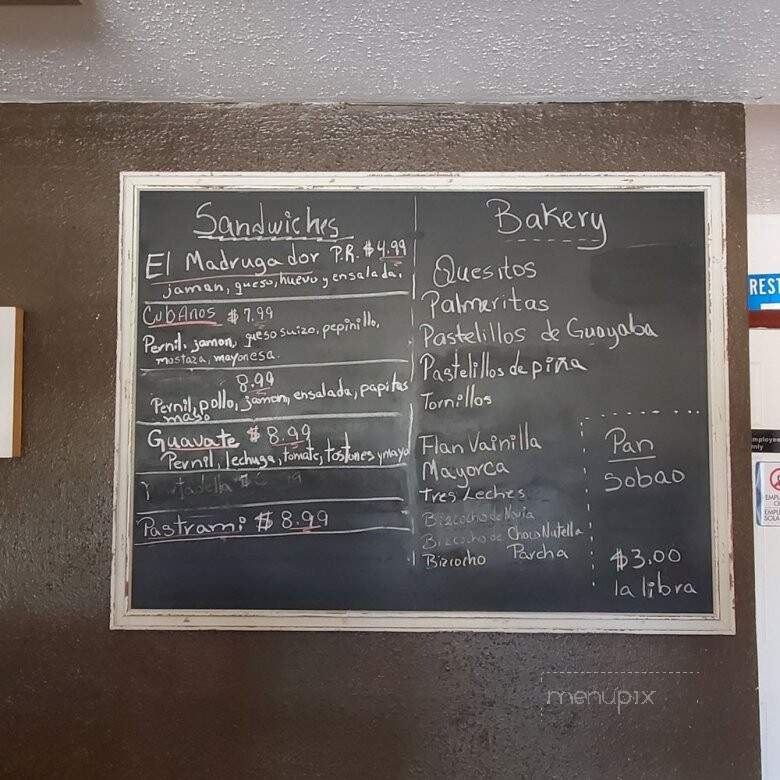 Sandwiches
El Madrugador P.R. $4.99
jaman, queso, huevo y ensalada.
CubAnos $7.99
Pernil, jamon, queso suizo, pepinillo,
mostaza, mayonesa.
8.99
Pernil, pollo, jamon, ensalada, papitas
Guavate $8.99
Pernil, lechuga, tomate, tostones y mayo
tadella $
Pastrami $8.99
Bakery
Quesitos
Palmeritas
Pastelillos de Guayaba
Pastelillos de piña
Tornillos
Flan Vainilla
Mayorca
tres Leches
Bizcocho de Novia
Bizcocho de ChocoNutella
Bizcocho Parcha
Pan
Sobao
$3.00
la libra
REST
menupix